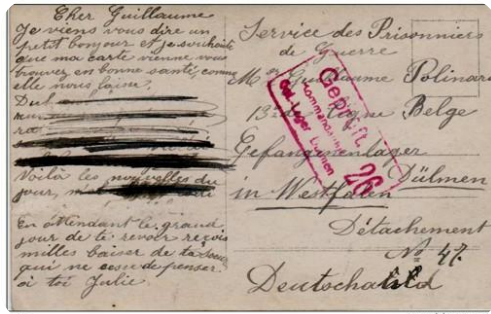 Cher Guillaume
Je viens vous dire un
petit bonjour et je souhaite
que ma carte vienne vous
trouver en bonne santé, comme
elle nous laisse,
Voila les nouvelles du
jour,
En attendant le grand
jour de te revoir reçois
milles baiser de ta soeur
qui ne cesse de penser
à toi Julie.
Service des Prisonniers
de Guerre
Mr Guillaume Polinard
13e de Ligne Belge
Gefangenenlager
Dülmen
in Westfalen
Détachement
No 47.
Deutschland
Geprüft
Kommandantur
Gef. Lager Dülmen
26